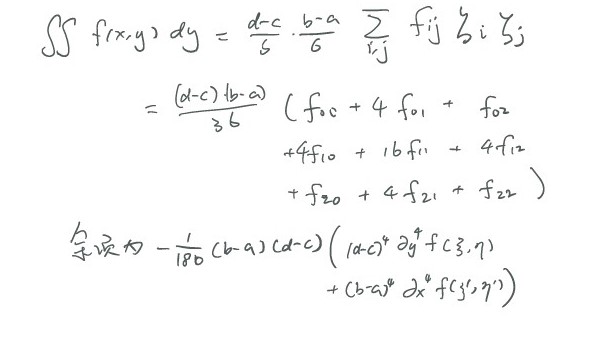 ∬ f(x,y) dy = (d-c)/6 · (b-a)/6 ∑_{i,j} f_{ij} ξ_i ξ_j
= (d-c)(b-a)/36 ( f_{00} + 4 f_{01} + f_{02}
+4f_{10} + 16 f_{11} + 4f_{12}
+ f_{20} + 4 f_{21} + f_{22} )
余项为 - 1/180 (b-a)(d-c) ( (d-c)^4 ∂y^4 f(ξ,η)
+ (b-a)^4 ∂x^4 f(ξ',η') )